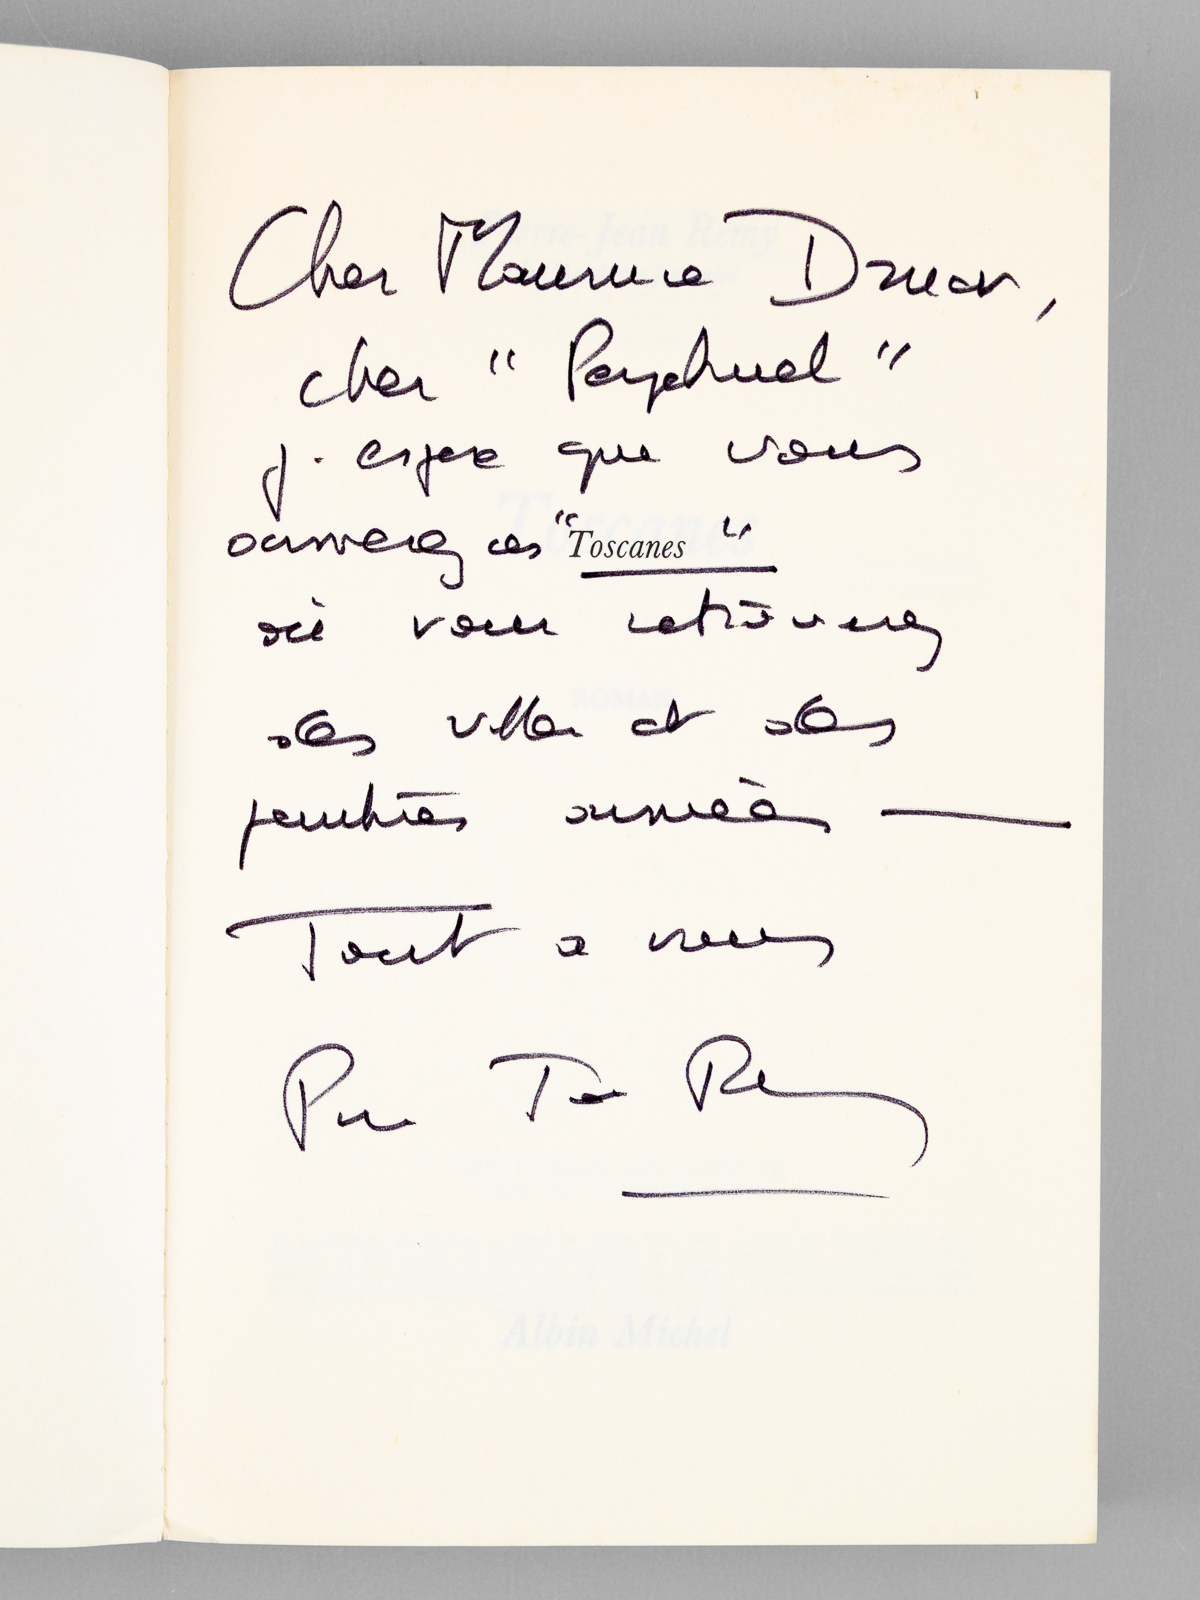 Cher Maurice Druon,
cher "Parzival"
j'espère que vous
aimerez ces "Toscanes"
où vous retrouverez
des villes et des
peintres aimées —
Tout à vous
Pierre Jean Remy
Pierre-Jean Rémy
Toscanes
ROMAN
Albin Michel